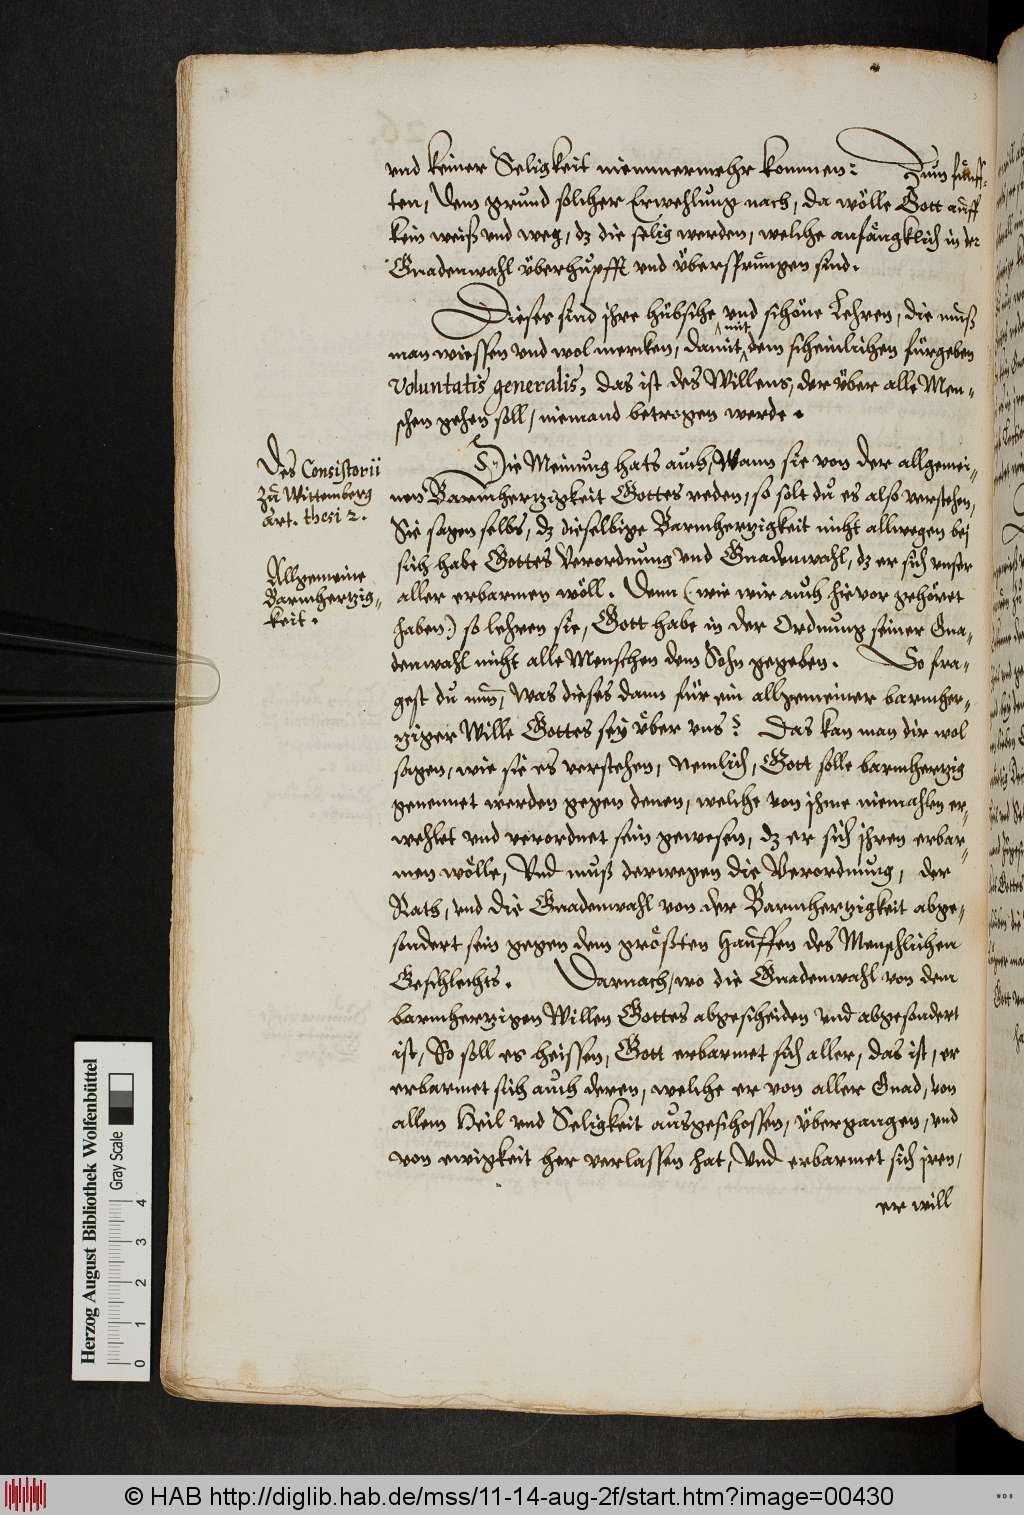 vnd keiner Seligkeit niemmermehr kommen: Zum fünff-
ten, Dem grund solcher Erwehlung nach, da wölle Gott auff
kein weiß vnd weg, dz die selig werden, welche anfängklich in der
Gnadenwahl überhupfft vnd übersprungen sind.
Dieses sind jhre hübsche vnd schöne Lehren, die muß
man wiessen vnd wol mercken, damit mit dem scheinlichen fürgeben
Voluntatis generalis, das ist des Willens, der über alle Men-
schen gehen soll, niemand betrogen werde.
Des Consistorii
zu Wittemberg
Art. thesi 2.
Die Meinung hats auch, Wann sie von der allgemei-
nen Barmhertzigkeit Gottes reden, so solt du es also verstehen,
Sie sagen selbs, dz dieselbige Barmhertzigkeit nicht allwegen bej
sich habe Gottes Verordnung vnd Gnadenwahl, dz er sich vnser
Allgemeine
Barmhertzig-
keit.
aller erbarmen wöll. Denn (wie wir auch hievor gehöret
haben:) so lehren sie, Gott habe in der Ordnung seiner Gna-
denwahl nicht alle Menschen dem Sohn gegeben. So fra-
gest du nun, Was dieses dann für ein allgemeiner barmher-
tziger Wille Gottes sej über vns? Das kan man dir wol
sagen, wie sie es verstehen, nemlich, Gott solle barmhertzig
genennet werden gegen denen, welche von jhme niemahlen er-
wehlet vnd verordnet sein gewesen, dz er sich jhren erbar-
men wölle, Vnd muß derwegen die Verordnung, der
Rath, vnd die Gnadenwahl von der Barmhertzigkeit abge-
sondert sein gegen dem größten Hauffen des Menschlichen
Geschlechts. Darnach, wo die Gnadenwahl von dem
barmhertzigen Willen Gottes abgescheiden vnd abgesondert
ist, So soll es heissen, Gott erbarmet sich aller, das ist, er
erbarmet sich auch deren, welche er von aller Gnad, von
allem Heil vnd Seligkeit ausgeschossen, übergangen, vnd
von ewigkeit her verlassen hat, Vnd erbarmet sich jren,
er will
Herzog August Bibliothek Wolfenbüttel
Gray Scale
0 1 2 3 4
© HAB http://diglib.hab.de/mss/11-14-aug-2f/start.htm?image=00430